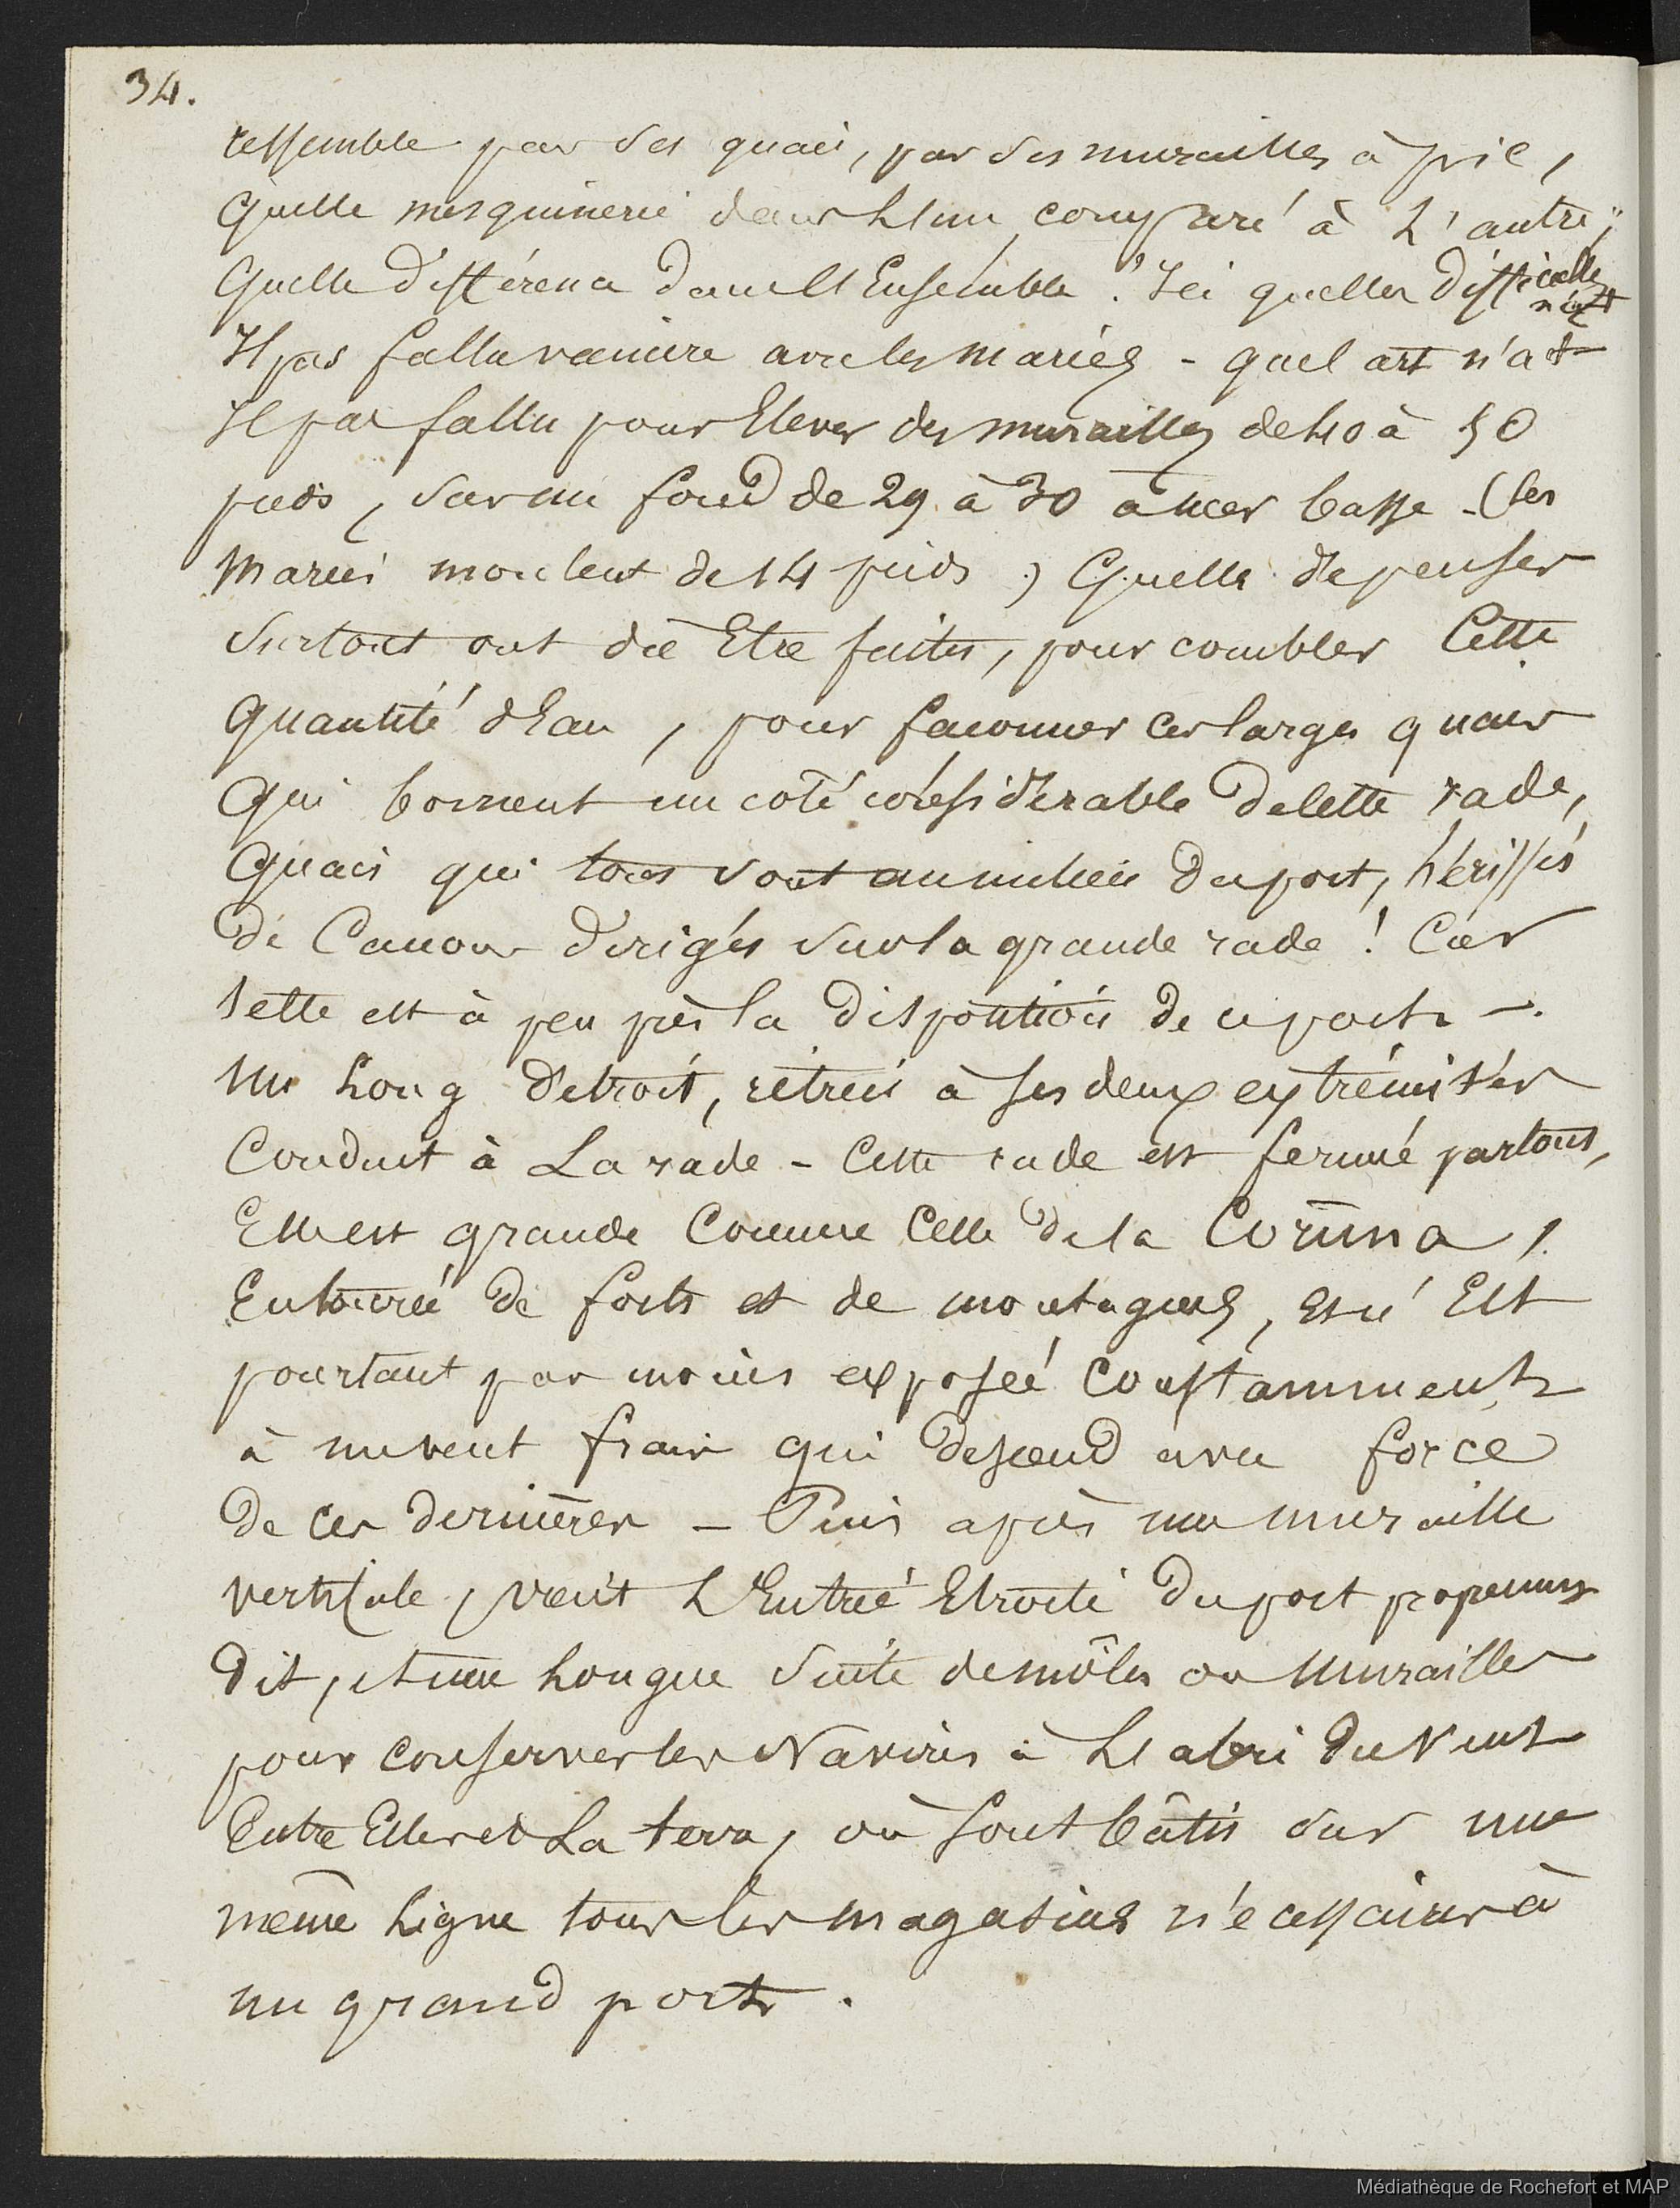 34.
ressemble par ses quais, par ses murailles à pic,
Quelle mesquinerie dans L'un comparé à L'autre,
Quelle différence dans L'Ensemble ! Ici quelles difficultés n'a t
Il pas fallu vaincre avec les marées - quel art n'a t
Il pas fallu pour Elever des murailles de 40 à 50
pieds, sur un fond de 29 à 30 à mer basse - (les
marées montent de 14 pieds .) Quelles depenses
surtout ont dû Etre faites, pour combler Cette
Quantité d'Eau, pour façonner ces larges quais
Qui bornent un coté considérable de Cette rade,
Quais qui tous sont au milieu du port, hérissés
de Canons dirigés sur la grande rade ! Car
telle est à peu près la disposition de ce port -.
Un Long détroit, rétréci à ses deux extrémités
Conduit à La rade - Cette rade est fermé partout,
Elle est grande Comme Celle de la Coruna,
Entourée de forts et de montagnes, est
pourtant pas moins exposée constamment
à un vent frais qui descend avec force
de ces dernières - Puis après une muraille
verticale, vient L'Entrée Etroite du port proprement
dit, et une Longue suite de môles ou murailles
pour conserver les Navires à L'abri du Vent
Entre Elles et La terre, où sont bâtis sur une
même Ligne tous les magasins nécessaires à
un grand port.
Médiathèque de Rochefort et MAP